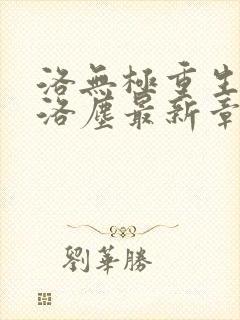 洛無極重生
洛塵最新章
劉華勝